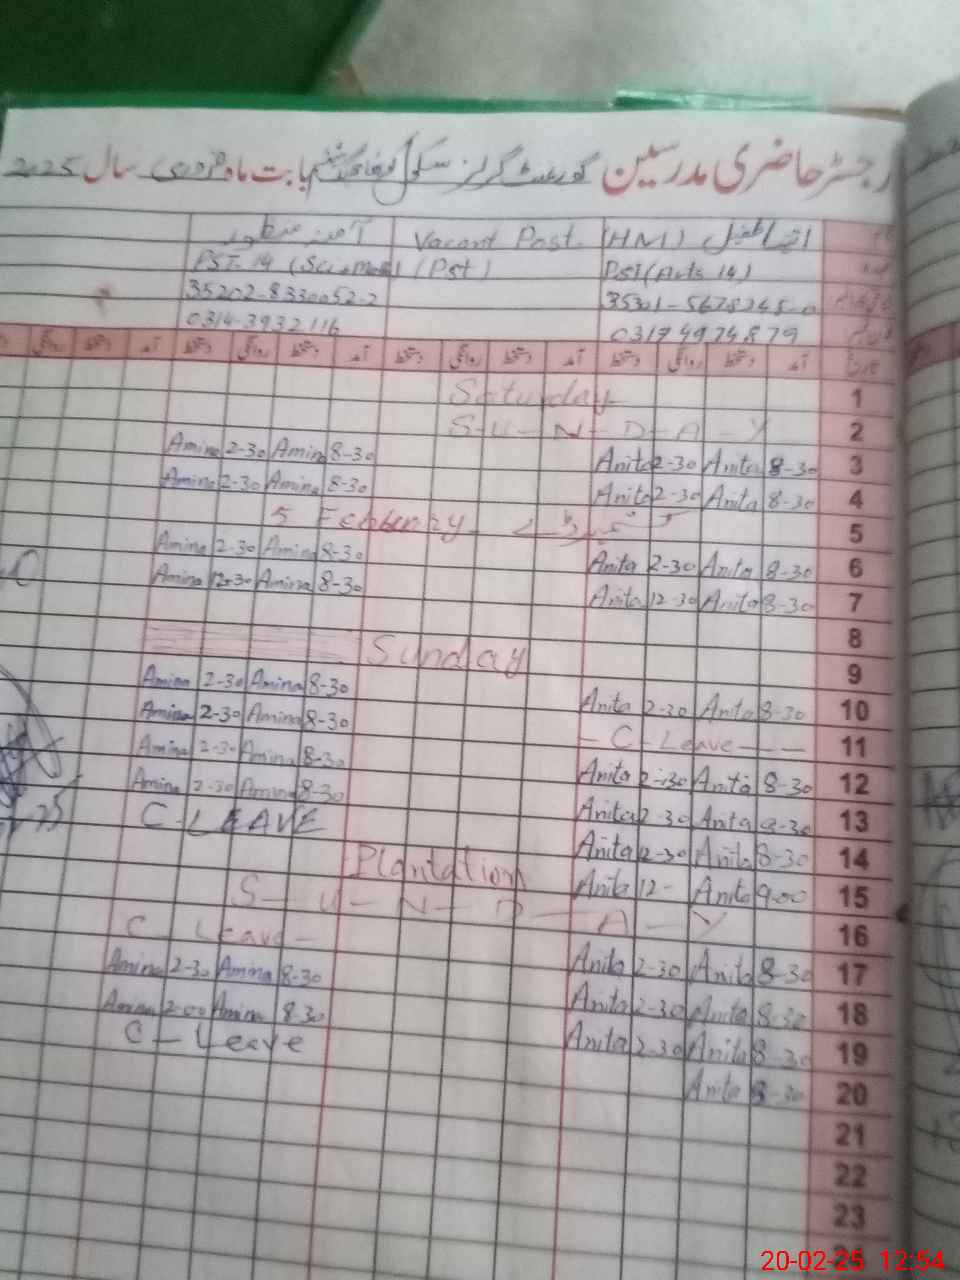 رجسٹر حاضری مدرسین گورنمنٹ گرلز سکول بابت ماہ فروری سال 2025
(HM) Vacant Post آمنہ منظور
PST (Arts 14) (Pst) PST-14 (Sci-math)
35202-8330052-2
0317 4974879 0314-3932116
آمد دستخط روانگی دستخط آمد دستخط روانگی دستخط آمد دستخط روانگی
1 Saturday
2 S-U-N-D-A-Y
3 Anita 2-30 Anita 8-30 Amina 2-30 Amina 8-30
4 Anita 2-30 Anita 8-30 Amina 2-30 Amina 8-30
5 5 Febburay
6 Anita 2-30 Anita 8-30 Amina 2-30 Amina 8-30
7 Anita 12-30 Anita 8-30 Amina 12-30 Amina 8-30
8
9 Sunday
10 Anita 2-30 Anita 8-30 Amina 2-30 Amina 8-30
11 - C - Leave - - Amina 2-30 Amina 8-30
12 Anita 2-30 Anita 8-30 Amina 2-30 Amina 8-30
13 Anita 2-30 Anita 8-30 Amina 2-30 Amina 8-30
14 Anita 2-30 Anita 8-30 C-LEAVE
15 Anita 12- Anita 9-00 Plantation
16 S-U-N-D-A-Y
17 Anita 2-30 Anita 8-30 C - Leave -
18 Anita 2-30 Anita 8-30 Amina 2-30 Amina 8-30
19 Anita 2-30 Anita 8-30 Amina 2-00 Amina 8-30
20 Anita 8-30 C - Leave
21
22
23
20-02-25 12:54